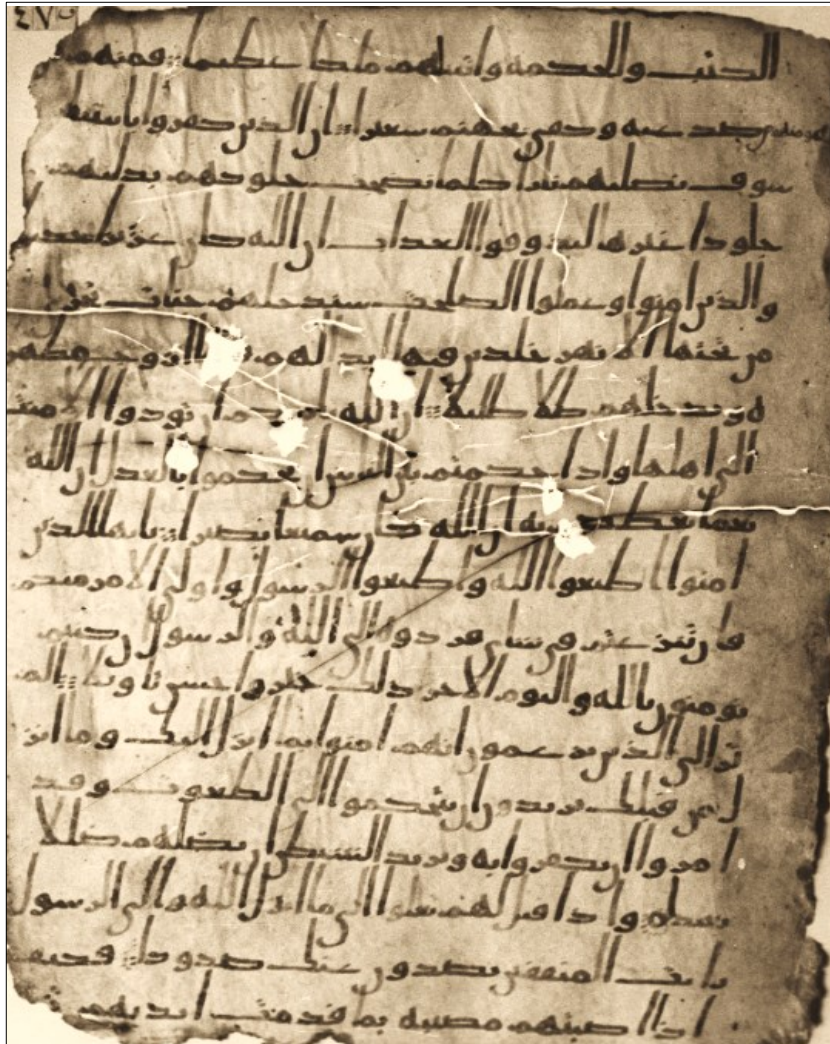 ٤٧
الكتب والحكمه واتينهم ملكا عظيما فمنهم
صد عنه وكفى بجهنم سعيرا ان الذين كفروا بايتنا
سوف نصليهم نارا كلما نضجت جلودهم بدلنهم
جلودا غيرها ليذوقوا العذاب ان الله كان عزيزا حكيما
والذين امنوا وعملوا الصلحت سندخلهم جنات تجري
من تحتها الانهر خلدين فيها ابدا لهم فيها ازوج مطهر
ه وندخلهم ظلا ظليلا ان الله يامركم ان تودوا الامنت
الى اهلها واذا حكمتم بين الناس ان تحكموا بالعدل ان الله
نعما يعظكم به ان الله كان سميعا بصيرا يايها الذين
امنوا اطيعوا الله واطيعوا الرسول واولي الامر منكم
فان تنزعتم في شاي فردوه الى الله والرسول ان كنتم
تومنون بالله واليوم الاخر ذلك خير واحسن تاويلا الم
تر الى الذين يزعمون انهم امنوا بما انزل اليك وما انز
ل من قبلك يريدون ان يتحكموا الى الطغوت وقد
امروا ان يكفروا به ويريد الشيطن ان يضلهم ضلالا
بعيدا واذا قيل لهم تعلوا الى ما انزل الله والى الرسول
رايت المنفقين يصدون عنك صدودا فكيف
اذا اصبتهم مصيبه بما قدمت ايديهم ثم